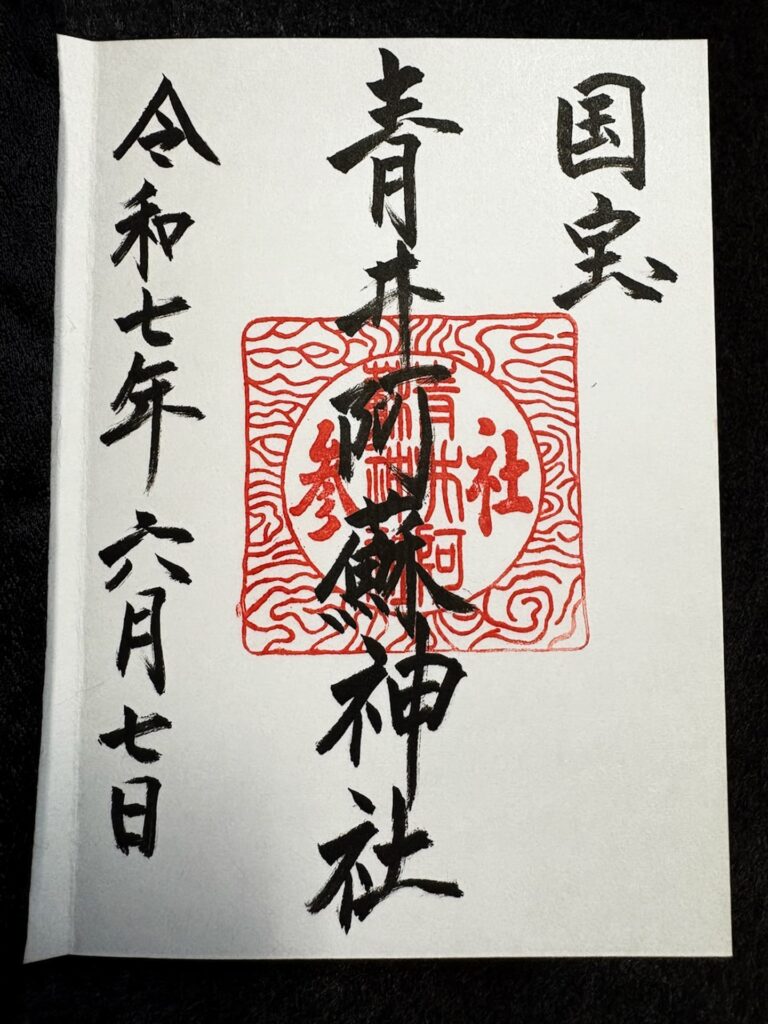 国宝
青井阿蘇神社
社参
青井阿
蘇神社
令和七年 六月七日